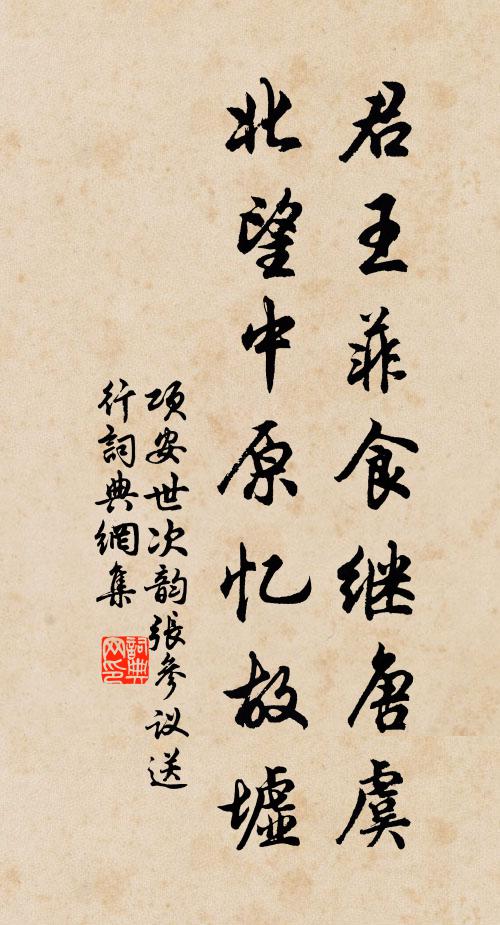 君王菲食继唐虞
北望中原忆故墟
项安世次韵張參议送
行詞典網集
詞典网印